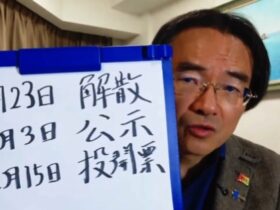 月23日 解散
月3日 公示
月15日 投開票